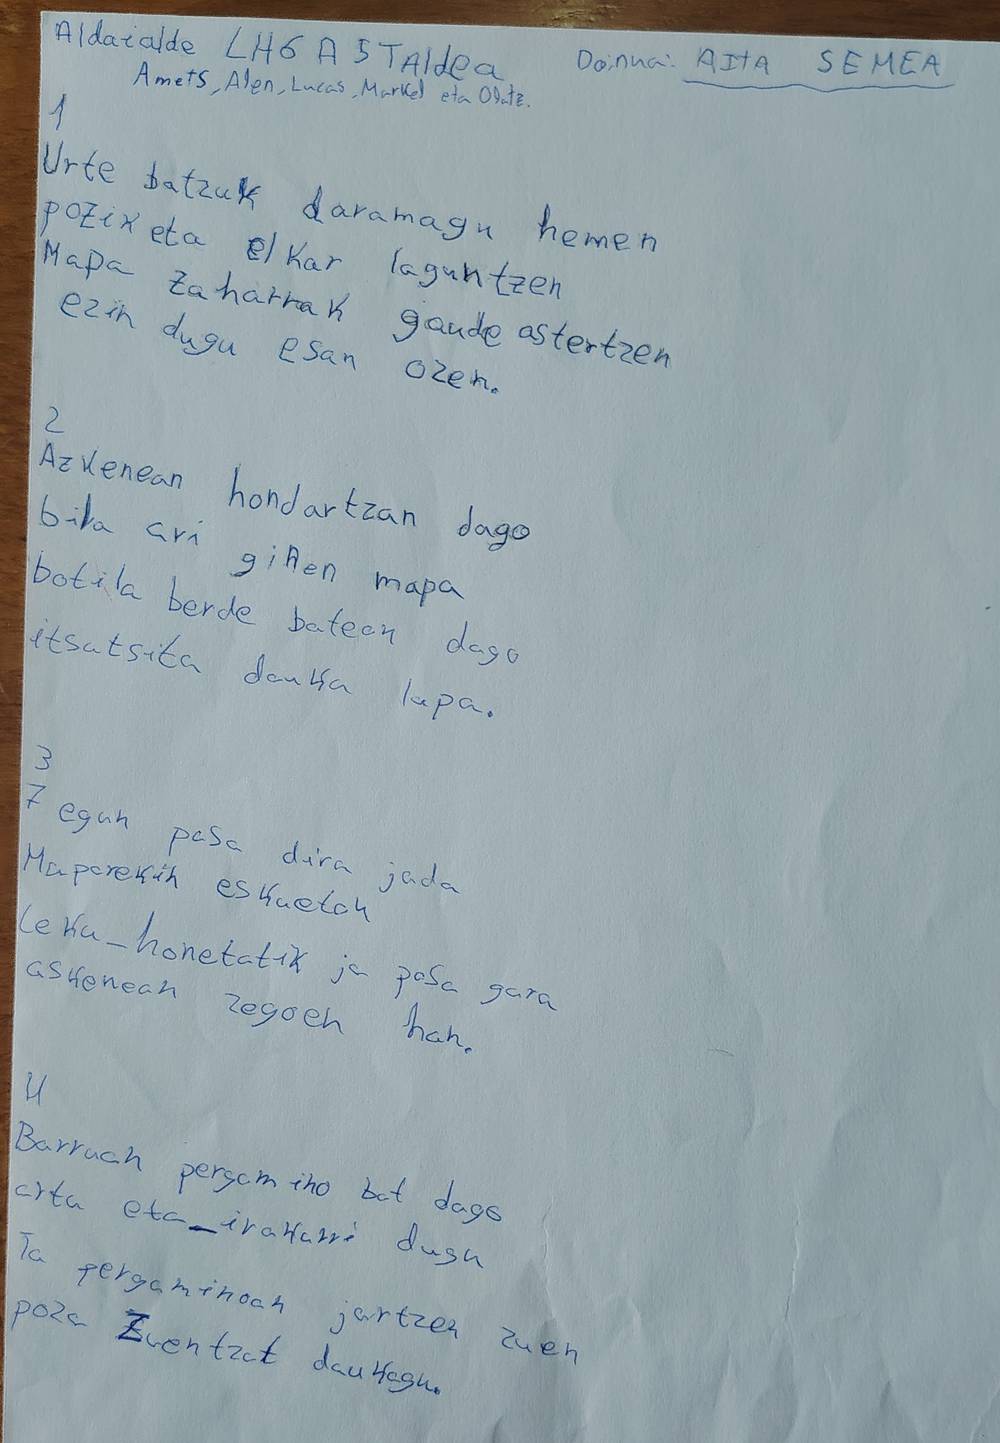 Aldaialde LH6 A 5 TAldea
Doinua: AITA SEMEA
Amets, Alen, Lucas, Markel eta Olatz.
1
Urte batzuk daramagu hemen
pozik eta elkar laguntzen
Mapa zaharrak gaude astertzen
ezin dugu esan ozen.
2
Azkenean hondartzan dago
bila ari giñen mapa
botila berde batean dago
itsatsita dauka lapa.
3
7 egun pasa dira jada
Maparekin eskuetan
Leku_honetatik ja pasa gara
askenean zegoen han.
4
Barruan pergamino bat dago
artu eta_irakurri dugu
Ta pergaminoan jartzen zuen
poza Zuentzat daukagu.